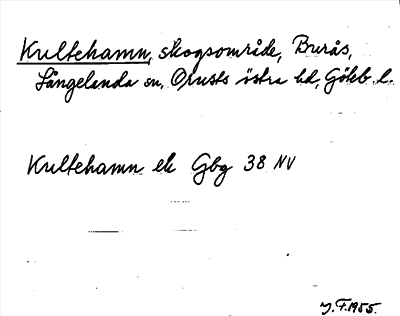 Kultehamn, skogsområde, Burås,
Långelanda sn, Orusts östra hd, Göteb. l.
Kultehamn ek Gbg 38 NV
J.F. 1955.